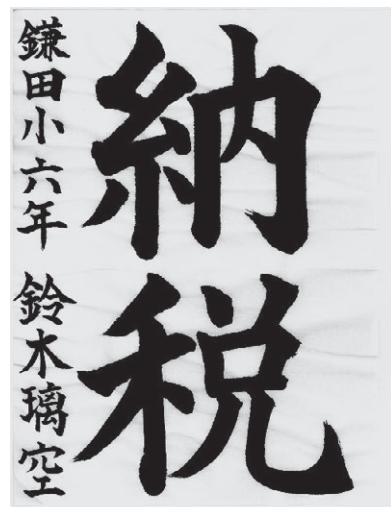 納税
鎌田小六年 鈴木璃空